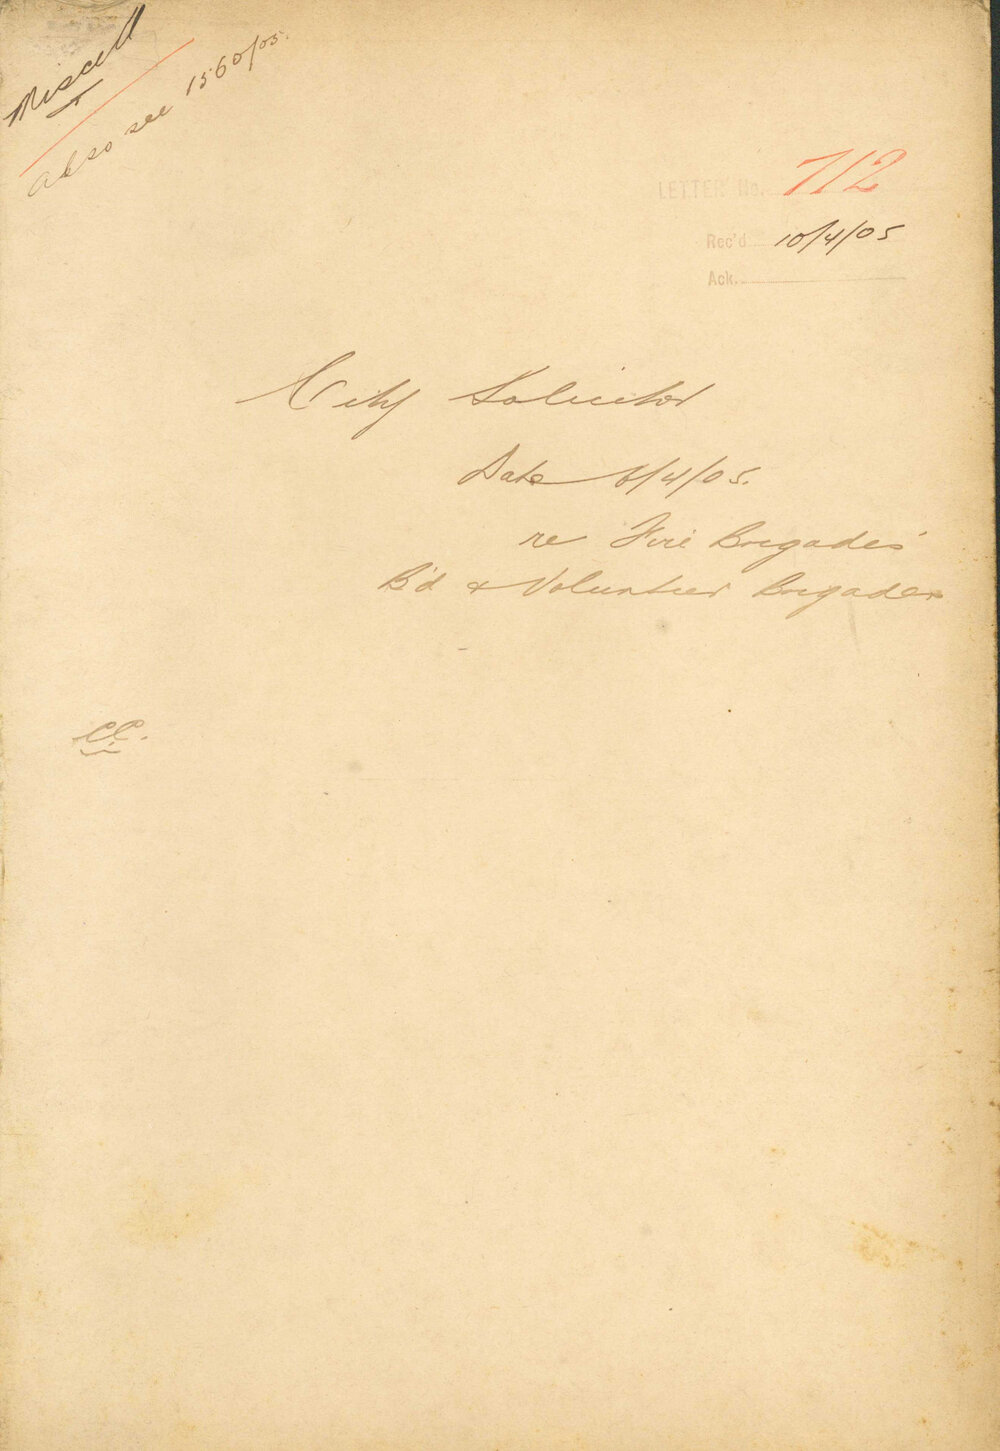 Miscell
also see 1560/05.
LETTER No. 712
Rec'd 10/4/05
Ack.
City Solicitor
Date 6/4/05.
re Fire Brigades'
B'd & Volunteer Brigades
CC.